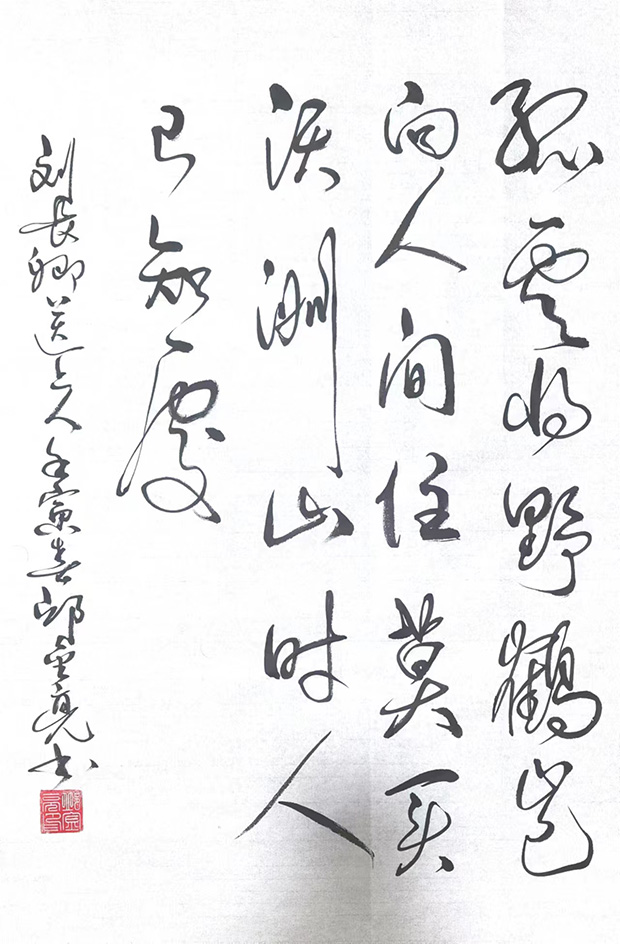 孤云将野鹤岂
向人间住莫买
沃洲山时人
已知处
刘长卿送上人壬寅春邱云亮书